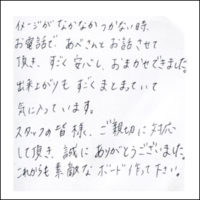 イメージがなかなかつかない時、
お電話で、あべさんとお話させて
頂き、すごく安心し、おまかせできました。
出来上がりも すごくまとまっていて
気に入っています。
スタッフの皆様、ご親切に対応
して頂き、誠にありがとうございました。
これからも素敵なボード作って下さい。